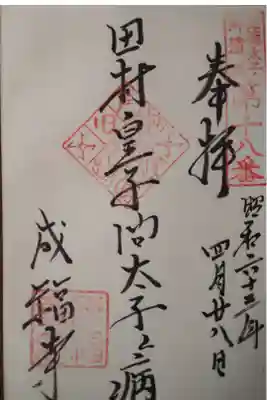 第十八番
奉拝
昭和六十三年
四月廿八日
田村皇子問太子之病
成福寺